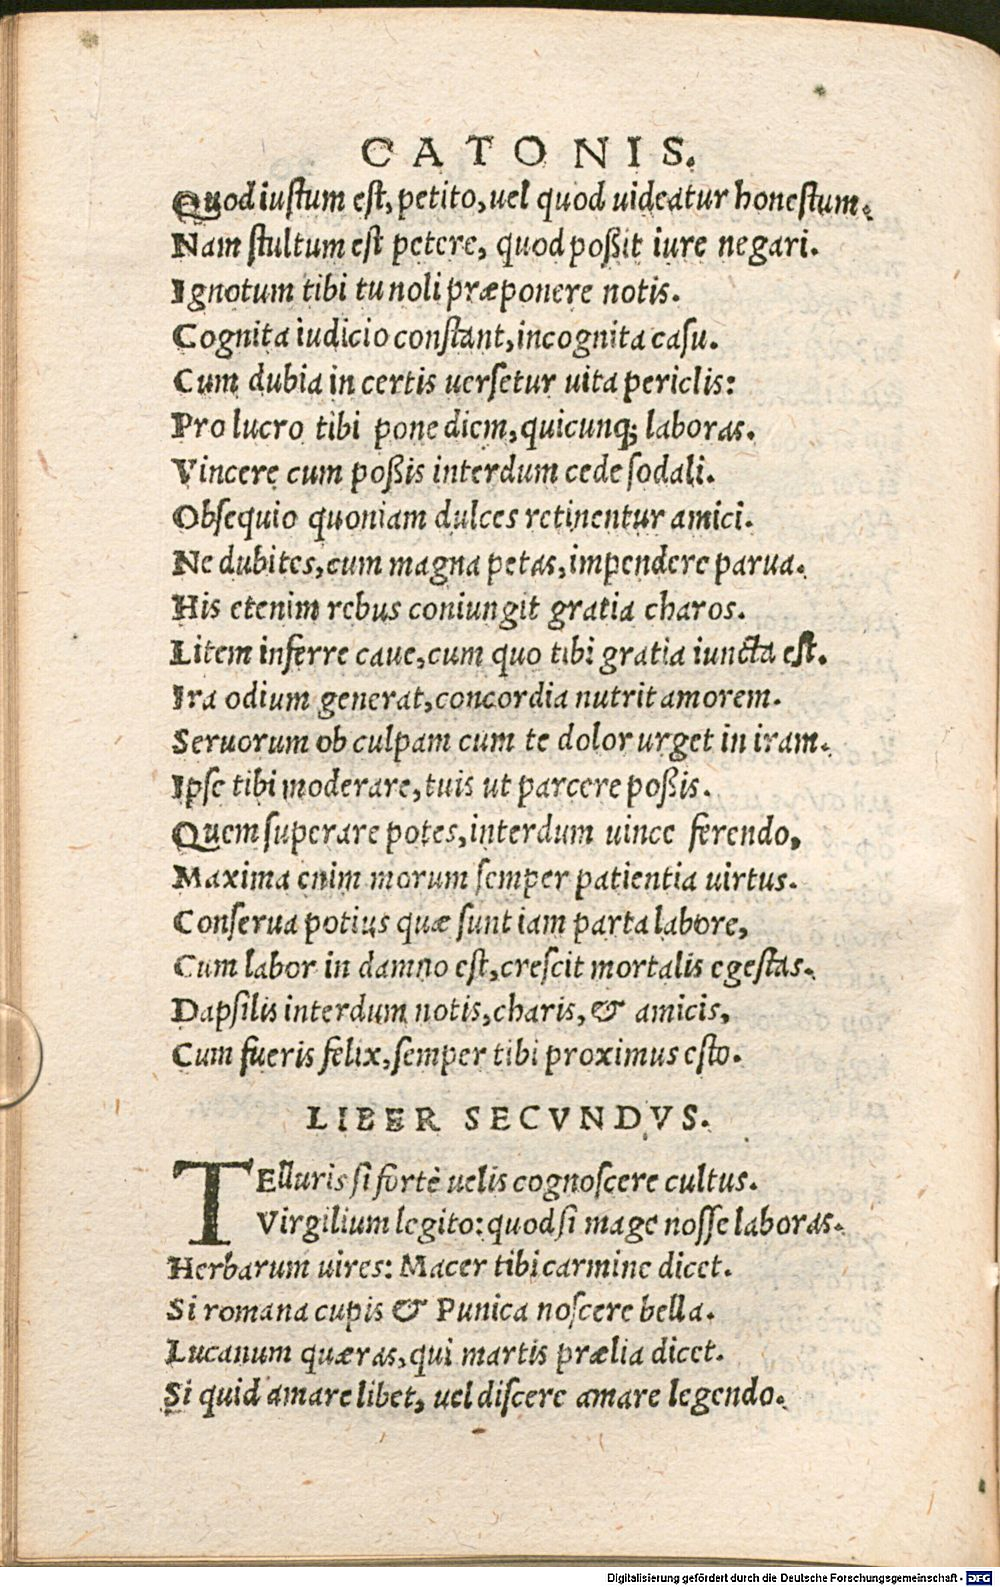 CATONIS.
Quod iustum est, petito, uel quod uideatur honestum.
Nam stultum est petere, quod poßit iure negari.
Ignotum tibi tu noli præponere notis.
Cognita iudicio constant, incognita casu.
Cum dubia in certis uersetur uita periclis:
Pro lucro tibi pone diem, quicunq; laboras.
Vincere cum poßis interdum cede sodali.
Obsequio quoniam dulces retinentur amici.
Ne dubites, cum magna petas, impendere parua.
His etenim rebus coniungit gratia charos.
Litem inferre caue, cum quo tibi gratia iuncta est.
Ira odium generat, concordia nutrit amorem.
Seruorum ob culpam cum te dolor urget in iram.
Ipse tibi moderare, tuis ut parcere poßis.
Quem superare potes, interdum uince ferendo,
Maxima enim morum semper patientia uirtus.
Conserua potius quæ sunt iam parta labore,
Cum labor in damno est, crescit mortalis egestas.
Dapsilis interdum notis, charis, & amicis,
Cum fueris felix, semper tibi proximus esto.
LIBER SECVNDVS.
TElluris si fortè uelis cognoscere cultus.
Virgilium legito: quod si mage nosse laboras.
Herbarum uires: Macer tibi carmine dicet.
Si romana cupis & Punica noscere bella.
Lucanum quæras, qui martis prælia dicet.
Si quid amare libet, uel discere amare legendo.
Digitalisierung gefördert durch die Deutsche Forschungsgemeinschaft - DFG